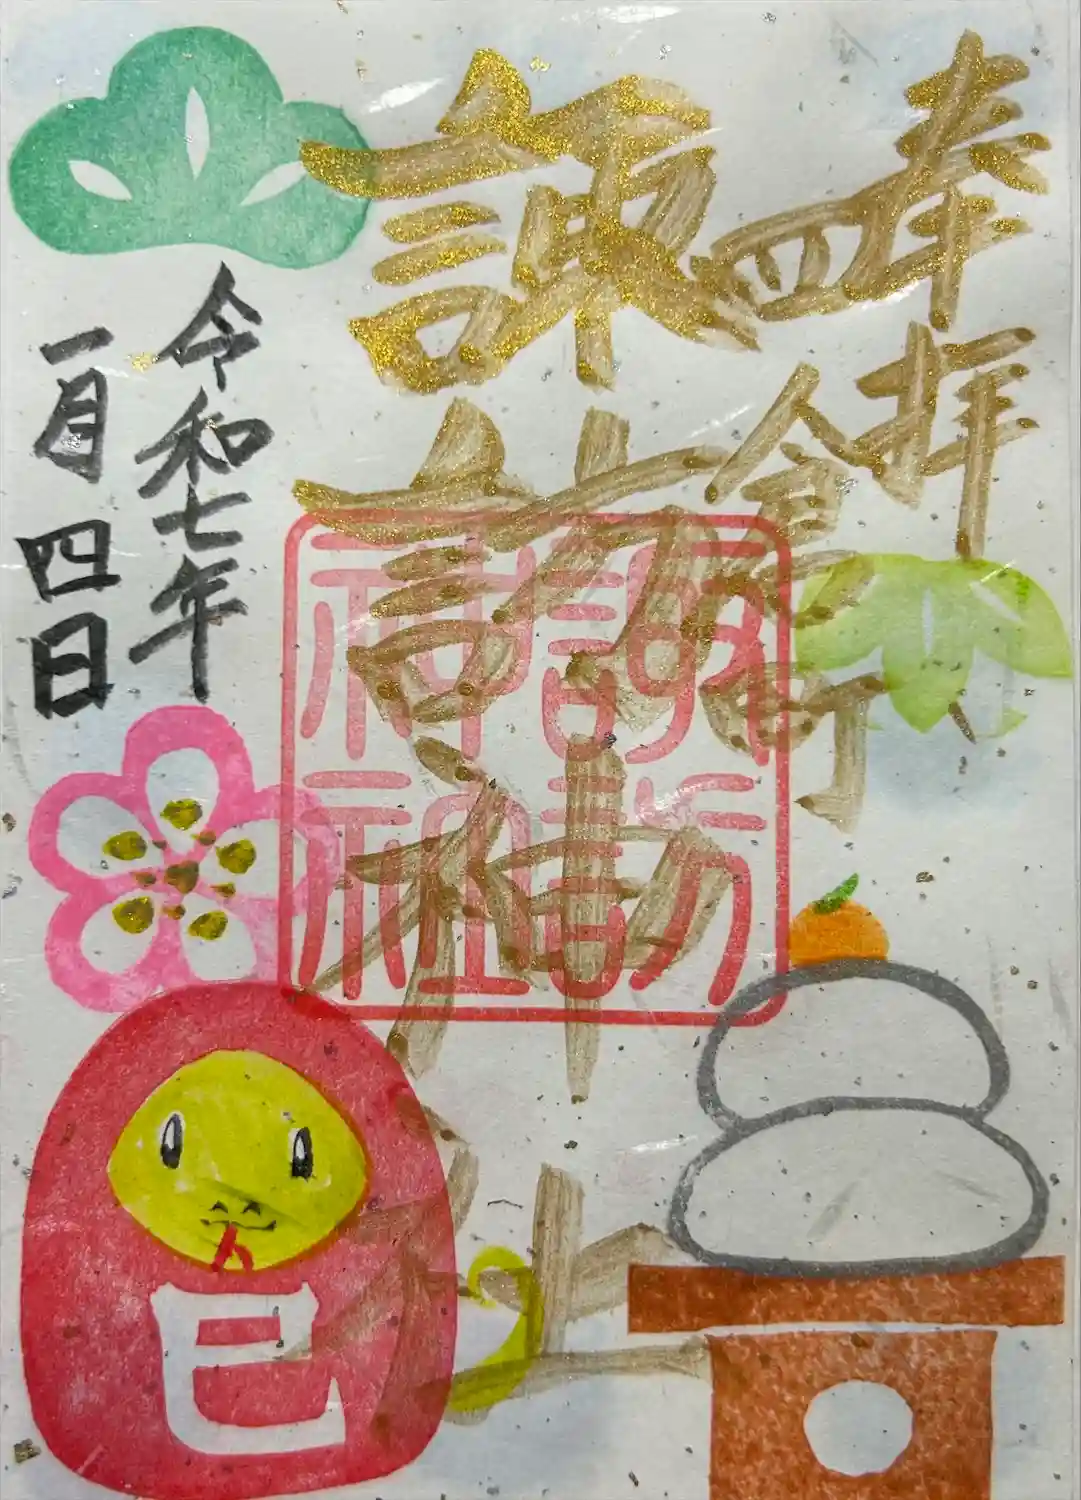 奉拝
四倉町
諏訪神社
諏訪神社
令和七年
一月四日
巳